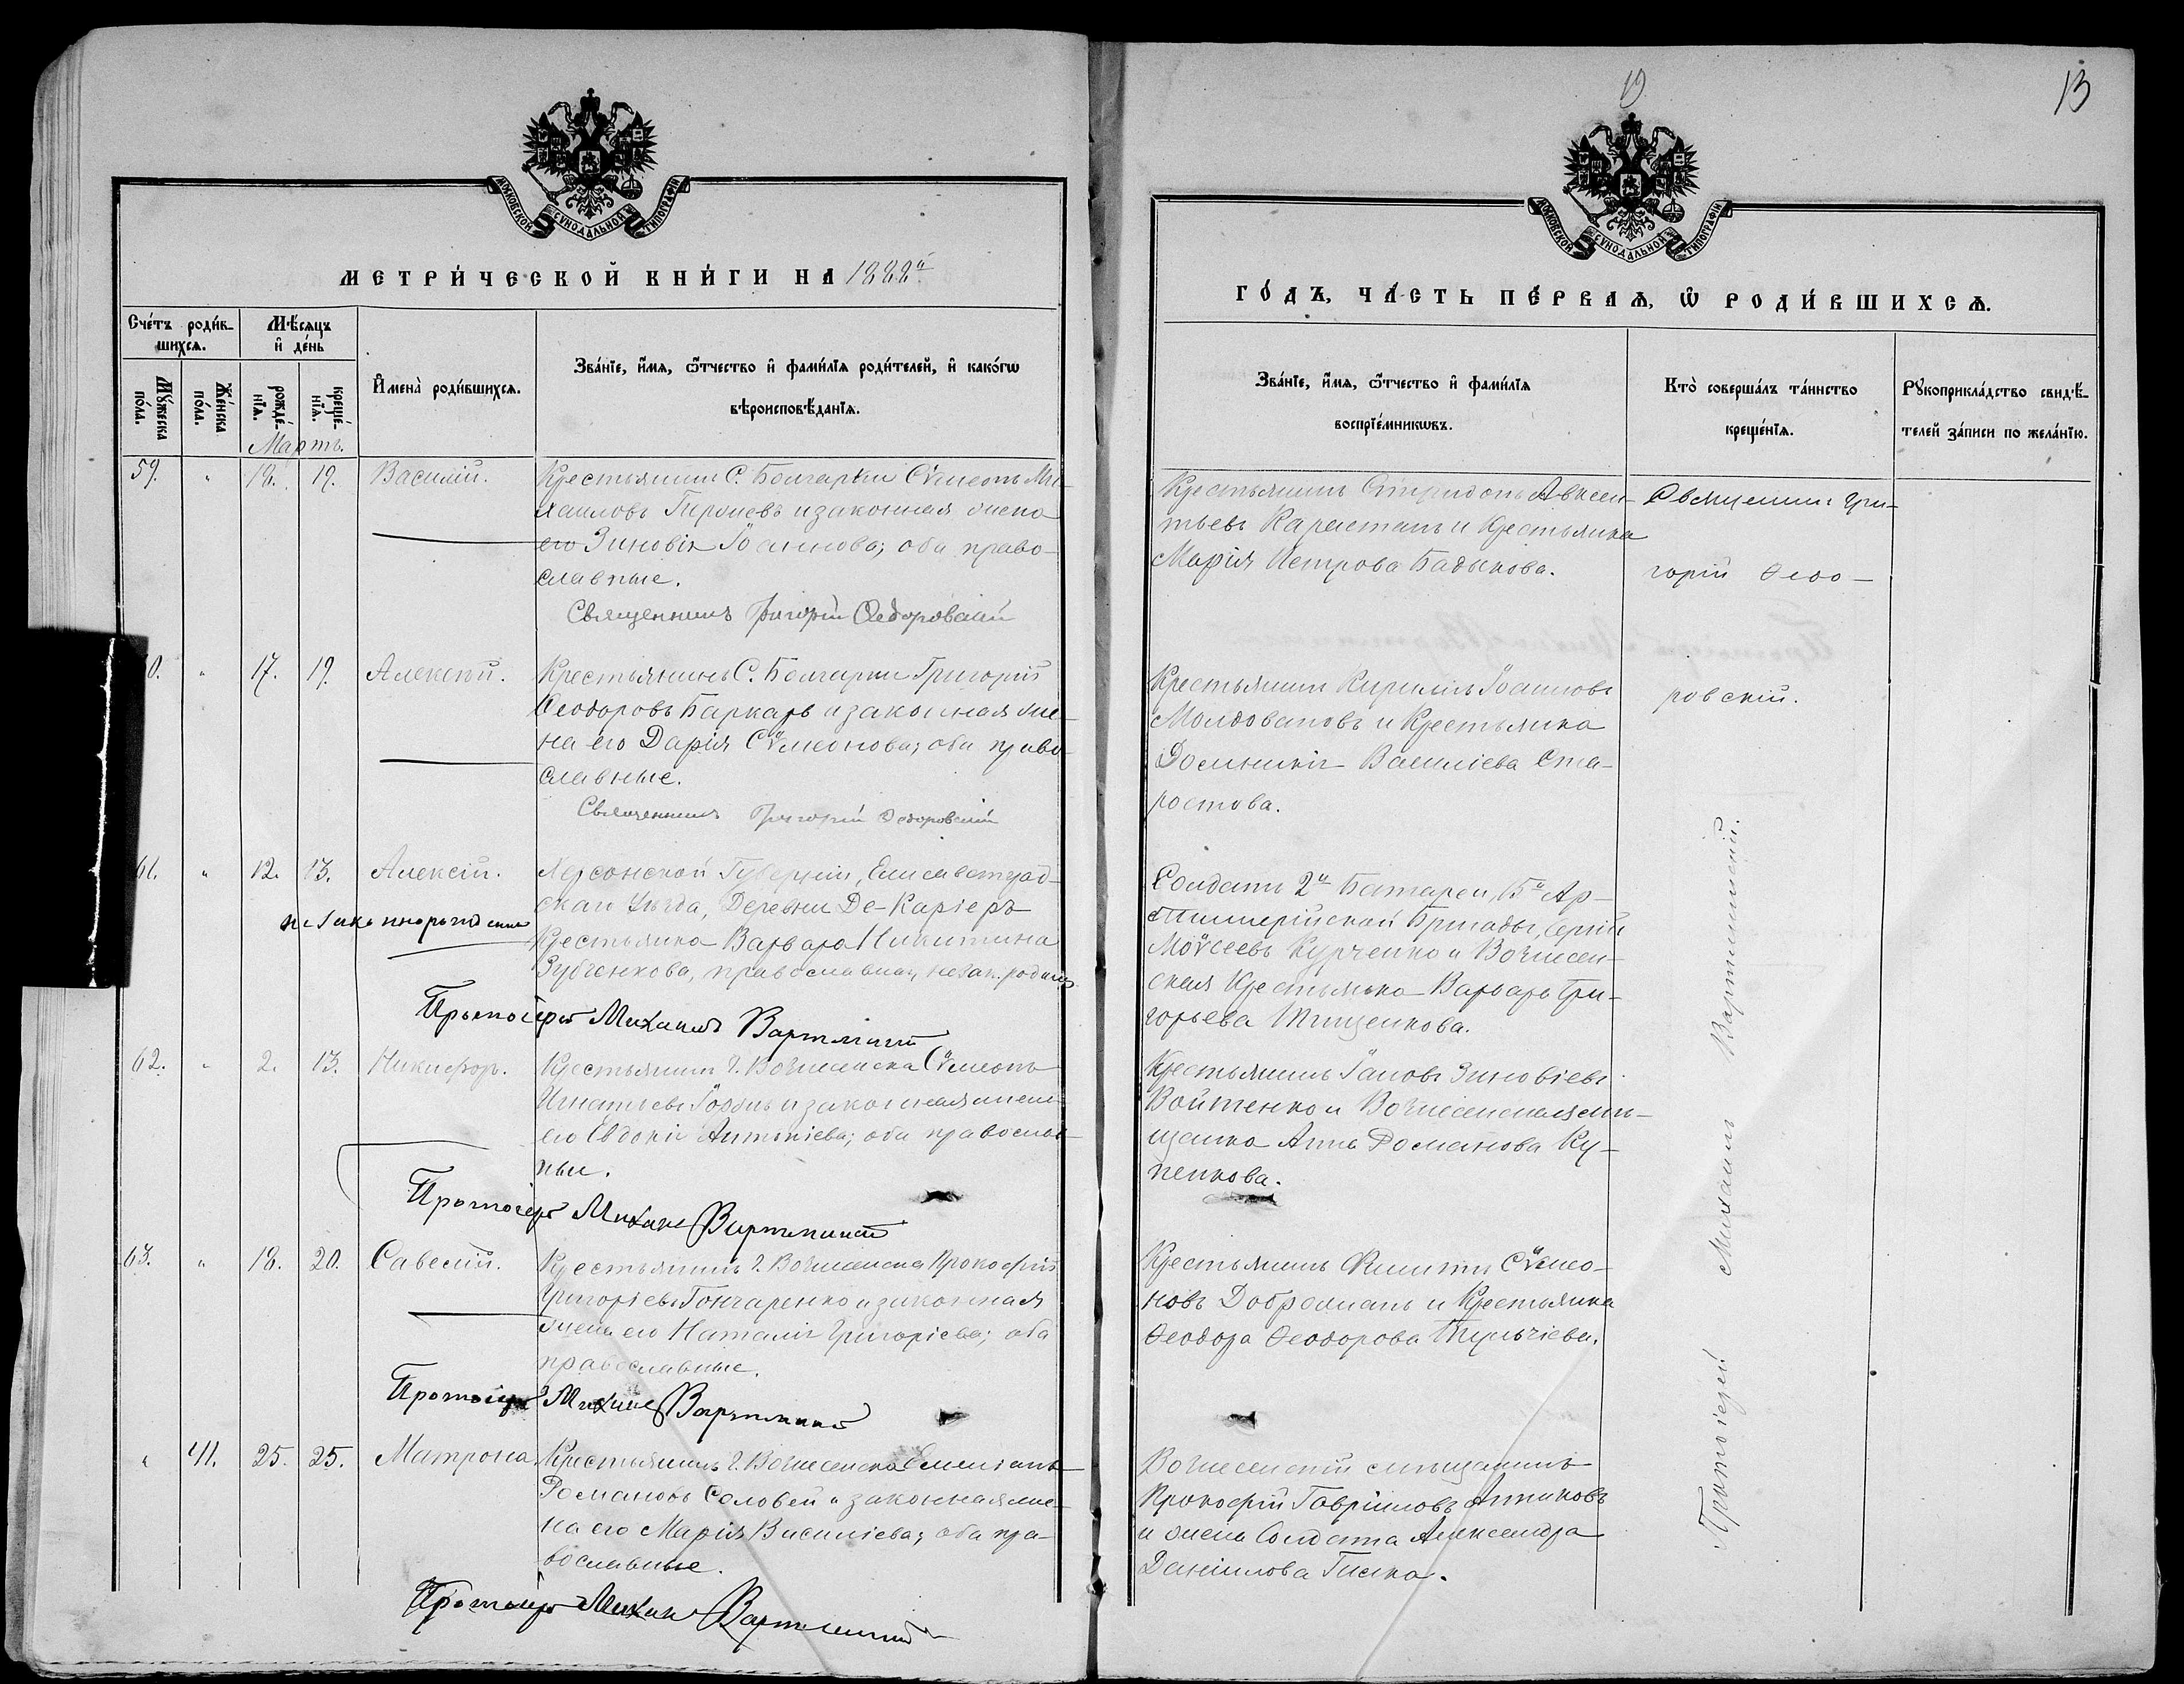 13
МОСКОВСКОЙ СУНОДАЛЬНОЙ ТИПОГРАФІИ
МЕТРИ́ЧЕСКОЙ КНИ́ГИ НА 1888й
Сче́тъ роди́в-
шихсѧ.
Мꙋ́жеска по́ла.
Же́нска по́ла.
Мѣ́сѧцъ и҆ де́нь
рожде́-
нїѧ.
креще́-
нїѧ.
И҆мена̀ роди́вшихсѧ.
Зва́нїе, и҆́мѧ, ѻ҆́тчество и҆ фами́лїѧ роди́телей, и҆ како́гѡ
вѣроисповѣ́данїѧ.
Мартъ.
59. " 18. 19. Василій.
Крестьянинъ С. Болгарки Сѵмеонъ Ми-
хаиловъ и законная жена
его Зиновія Іоаннова; оба право-
славные.
Священникъ Григорій Ѳедоровскій
" 17. 19. Алексѣй.
Крестьянинъ С. Болгарки Григорій
Ѳеодоровъ Баркарь и законная же-
на его Дарія Сѵмеонова; оба право-
славные.
Священникъ Григорій Ѳедоровскій
61. " 12. 13. Алексій.
незаконнорожденный
Херсонской Губерніи, Елисаветград-
скаго Уѣзда, Деревни Де-Каріеръ
Крестьянка Варвара Никитина
Зубченкова, православная, незак. родила
Протоіерей Михаилъ Вартминскій
62. " 2. 13. Никифоръ.
Крестьянинъ г. Вознесенска Сѵмеонъ
Игнатьевъ и законная жена
его Евдокія Антоніева; оба православ-
ные.
Протоіерей Михаилъ Вартминскій
63. " 18. 20. Савелій.
Крестьянинъ г. Вознесенска Прокофій
Григоріевъ Гончаренко и законная
жена его Наталія Григоріева; оба
православные.
Протоіерей Михаилъ Вартминскій
" 41. 25. 25. Матрона.
Крестьянинъ г. Вознесенска Емеліанъ
Романовъ Соловей и законная же-
на его Марія Василіева; оба пра-
вославные.
Протоіерей Михаилъ Вартминскій
МОСКОВСКОЙ СУНОДАЛЬНОЙ ТИПОГРАФІИ
ГО́ДЪ, ЧА́СТЬ ПЕ́РВАѦ, Ѡ҆ РОДИ́ВШИХСѦ.
Зва́нїе, и҆́мѧ, ѻ҆́тчество и҆ фами́лїѧ
воспрїе́мникѡвъ.
Кто̀ соверша́лъ та́инство
креще́нїѧ.
Рꙋкоприкла́дство свидѣ́-
телей за́писи по жела́нїю.
Крестьянинъ Спиридонъ Авксен-
тьевъ и Крестьянка
Марія Петрова Бадыкова.
Священникъ Гри-
горій Ѳедо-
ровскій.
Крестьянинъ Кириллъ Іоанновъ
Молдовановъ и Крестьянка
Домникія Василіева Ста-
ростова.
Солдатъ 2й Батареи, 15й Ар-
тиллерійской Бригады, Сергій
Моѵсеевъ Курченко и Вознесен-
ская Крестьянка Варвара Гри-
горьева Тищенкова.
Крестьянинъ Іаковъ Зиновіевъ
Войтенко и Вознесенская мѣ-
щанка Анна Романова Ку-
ценкова.
Крестьянинъ Филиппъ Сѵмео-
новъ Доброжанъ и Крестьянка
Ѳеодора Ѳеодорова
Вознесенскій мѣщанинъ
Прокофій Гавріиловъ
и жена Солдата Александра
Даніилова
Протоіерей Михаилъ Вартминскій.